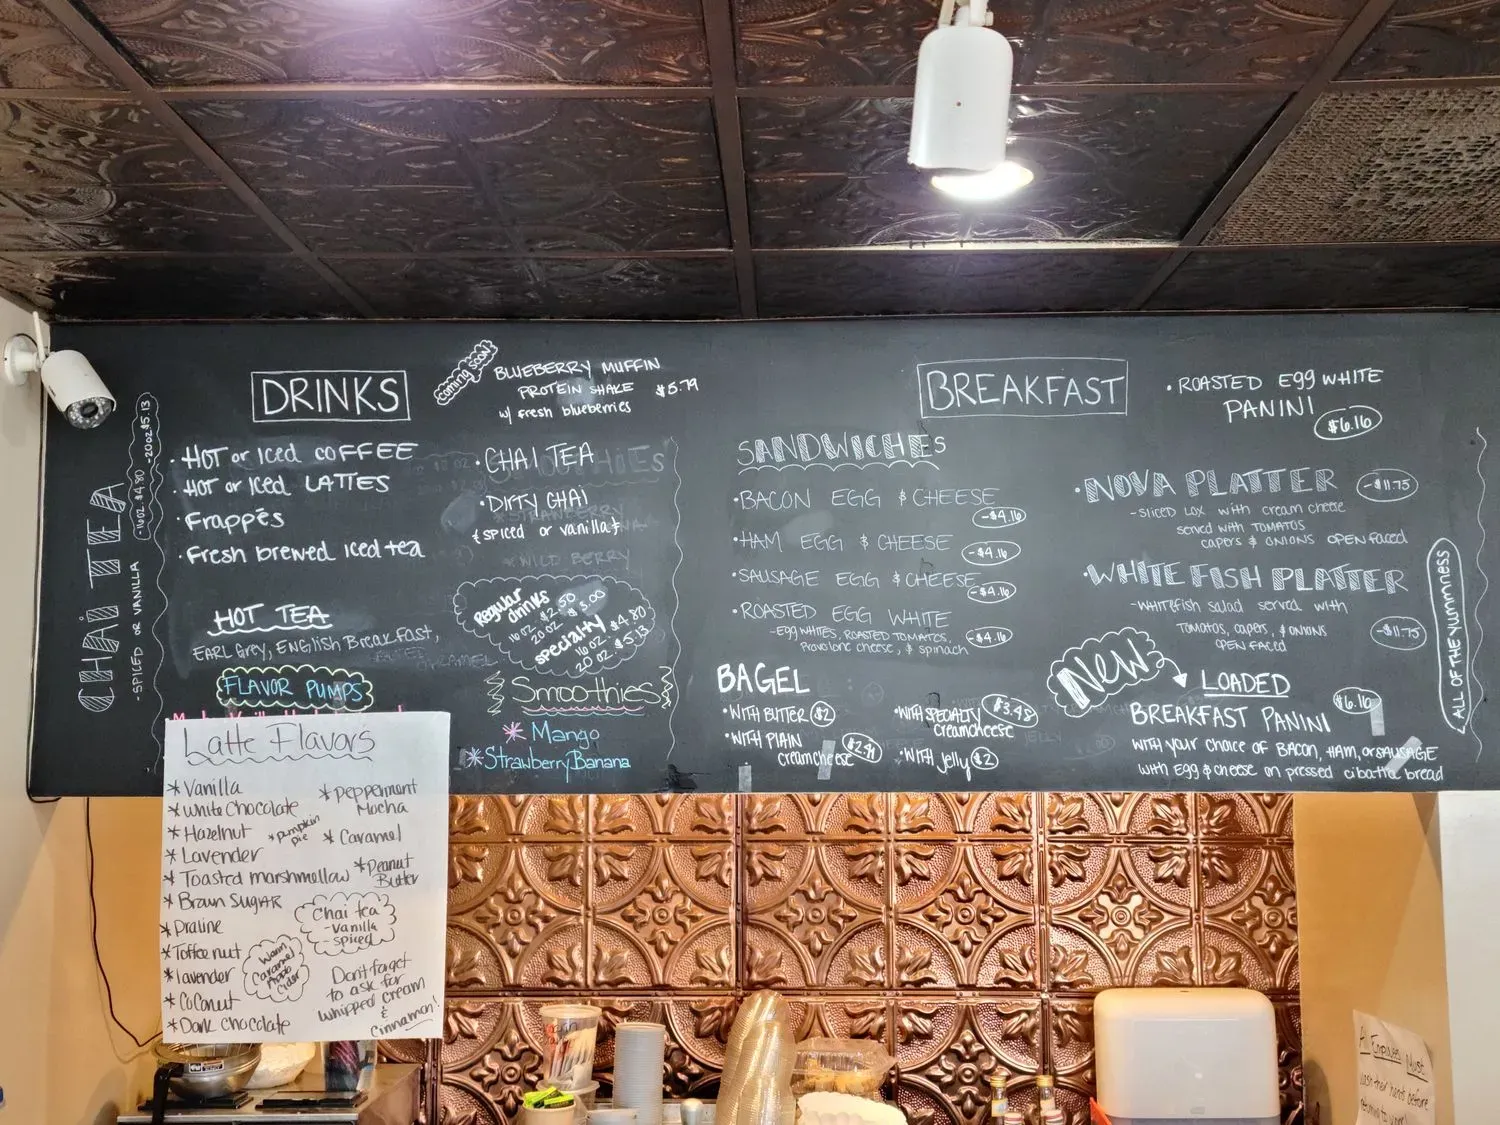 CHAI TEA
- SPICED OR VANILLA
-16oz $4.80
-20oz $5.13
DRINKS
Coming Soon
BLUEBERRY MUFFIN
PROTEIN SHAKE $5.79
w/ fresh blueberries
• HOT or Iced COFFEE
• HOT or Iced LATTES
• Frappés
• Fresh brewed Iced tea
• CHAI TEA
• DIRTY CHAI
{spiced or vanilla}
HOT TEA
EARL Grey, ENGlish Breakfast,
Regular
drinks
16oz. $2.50
20oz. $3.00
specialty
16oz. $4.80
20 oz. $5.13
FLAVOR PUMPS
Smoothies
* Mango
* Strawberry Banana
Latte Flavors
* Vanilla
* White Chocolate
* Hazelnut
* pumpkin
pie
* Lavender
* Toasted marshmellow
* Brown SUGAR
* Praline
* Toffee nut
* lavender
* CoConut
* Dark chocolate
* peppermint
Mocha
* Caramel
* Peanut
Butter
Chai tea
- vanilla
- spiced
Warm
Caramel
Apple
Cider
Don't forget
to ask for
whipped cream
&
Cinnamon!
BREAKFAST
SANDWICHES
• BACON EGG & CHEESE
-$4.16
• HAM EGG & CHEESE
-$4.16
• SAUSAGE EGG & CHEESE
-$4.16
• ROASTED EGG WHITE
- EGG WHITES, ROASTED TOMATOS,
Provolone cheese, & spinach
-$4.16
BAGEL
• WITH BUTTER $2
• WITH PLAIN
creamcheese $2.91
• WITH SPECIALTY
creamcheese $3.48
• WITH Jelly $2
• ROASTED Egg WHITE
PANINI
$6.16
• NOVA PLATTER -$11.75
- SLICED LOX with cream cheese
served with TOMATOS
capers & ONIONS OPEN FACED
• WHITE FISH PLATTER
- WHITEfish salad served with
TOMATOS, capers, & ONIONS
OPEN FACED
-$11.75
NEW
LOADED
BREAKFAST PANINI $6.16
WITH your choice of BACON, HAM, or SAUSAGE
with Egg & cheese on pressed cibatta bread
ALL OF THE YUMMNESS
All Employees Must
wash their hands before